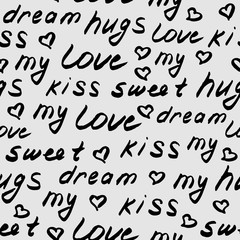 dream hugs
ss ♡ my love ki
my ♡ love ♡ my
♡ kiss sweet hug
my love ♡ dream
love ♡
sweet ♡ kiss my
ugs dream ♡ hugs
my ♡ kiss ♡
eet ♡ love my sw